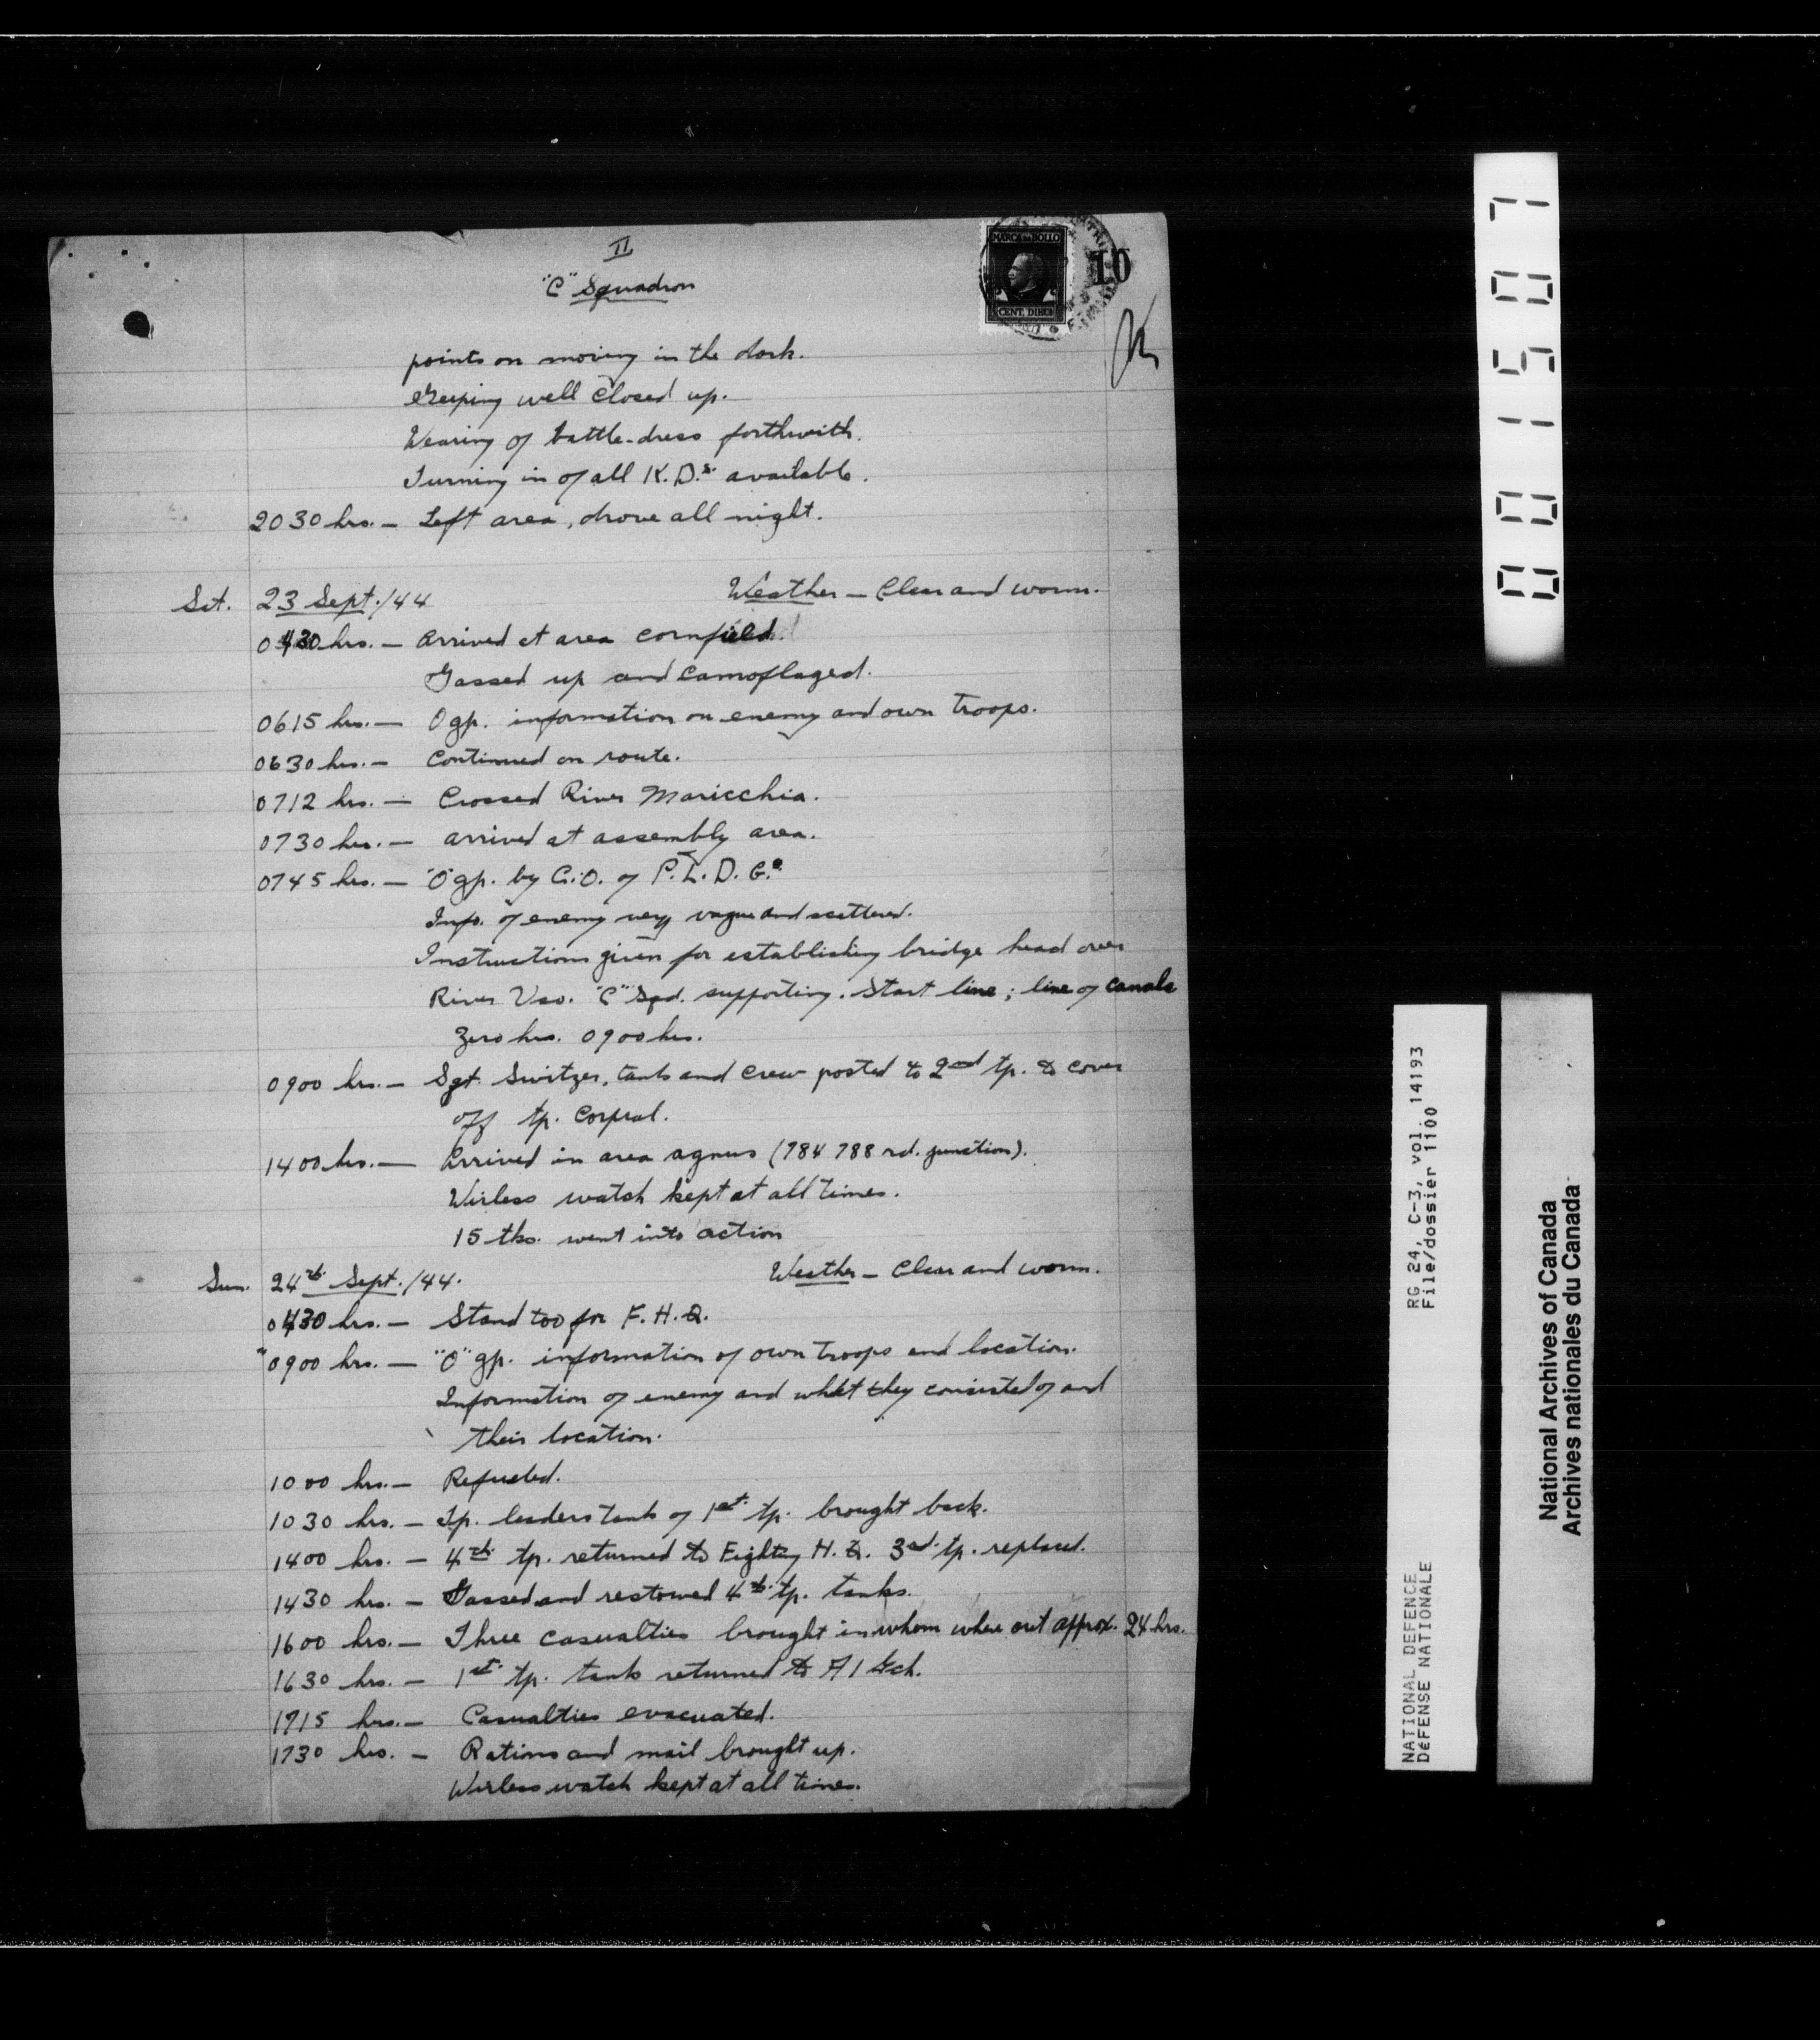 II
"C" Squadron
MARCA DA BOLLO
CENT. DIECI
10
points on moving in the dark.
Keeping well closed up.
Wearing of battle-dress forthwith.
Turning in of all K.D.s. available.
2030 hrs. — Left area, drove all night.
Sat. 23 Sept./44 Weather — Clear and warm.
0430 hrs. — Arrived at area cornfield.
Gassed up and camoflaged.
0615 hrs. — O gp. information on enemy and own troops.
0630 hrs. — Continued on route.
0712 hrs. — Crossed River Maricchia.
0730 hrs. — arrived at assembly area.
0745 hrs. — "O" gp. by C.O. of P.L.D.G.s
Info. of enemy very vague and scattered.
Instructions given for establishing bridge head over
River Uso. "C" Sqd. supporting. Start line; line of canals
Zero hrs. 0900 hrs.
0900 hrs. — Sgt. Switzer, tank and crew posted to 2nd tp. to cover
off tp. Corpral.
1400 hrs. — Arrived in area agnus (784 788 rd. junction).
Wirless watch kept at all times.
15 tks. went into action
Sun. 24th Sept./44. Weather — Clear and warm.
0430 hrs. — Stand too for F.H.Q.
0900 hrs. — "O" gp. information of own troops and location.
Information of enemy and what they consisted of and
their location.
1000 hrs. — Refueled.
1030 hrs. — Tp. leaders tank of 1st. tp. brought back.
1400 hrs. — 4th. tp. returned to Fighting H.Q. 3rd. tp. replaced.
1430 hrs. — Gassed and restowed 4th. tp. tanks.
1600 hrs. — Three casualties brought in whom where out approx. 24 hrs.
1630 hrs. — 1st. tp. tank returned to A1 Ech.
1715 hrs. — Casualties evacuated.
1730 hrs. — Rations and mail brought up.
Wirless watch kept at all times.
001507
RG 24, C-3, vol. 14193
File/dossier 1100
NATIONAL DEFENCE
DÉFENSE NATIONALE
National Archives of Canada
Archives nationales du Canada